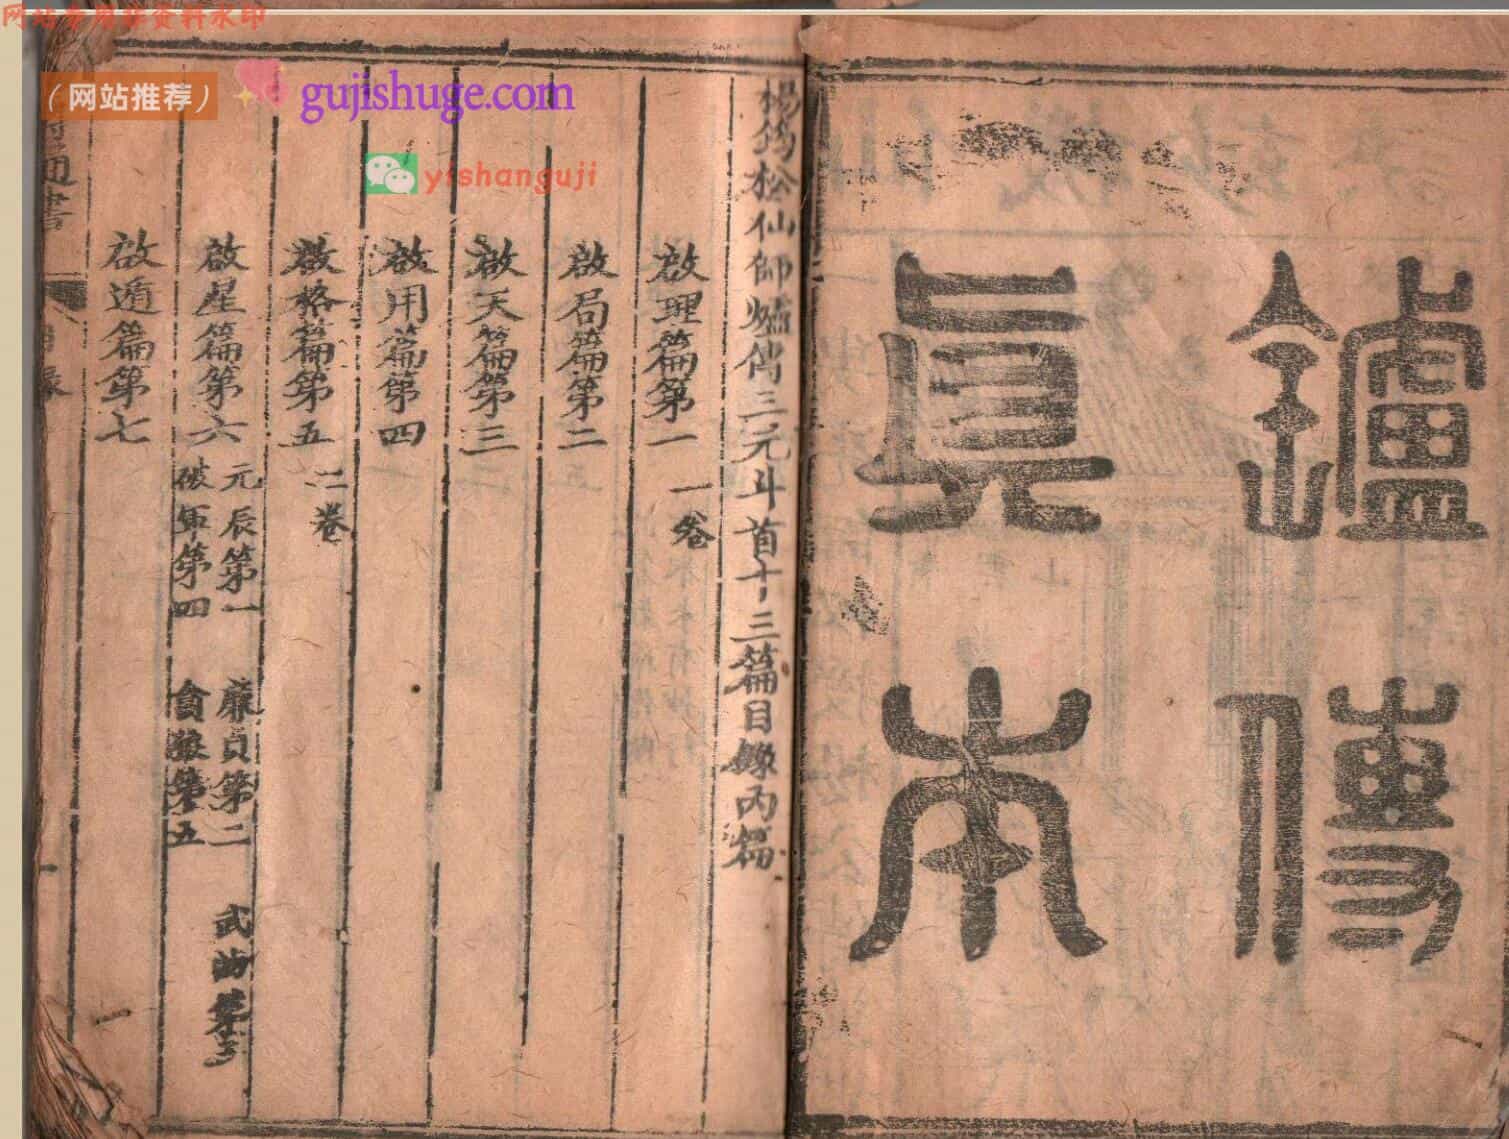 网站专用非资料水印
（网站推荐）
gujishuge.com
yishanguji
鑪傳
眞本
楊筠松仙師爐傳三元斗首十三篇目錄內篇
啟理篇第一 一卷
啟局篇第二
啟天篇第三
啟用篇第四
啟格篇第五 二卷
啟星篇第六 元辰第一 廉貞第二 武曲第三
破軍第四 貪狼第五
啟遁篇第七
通書
目錄
一